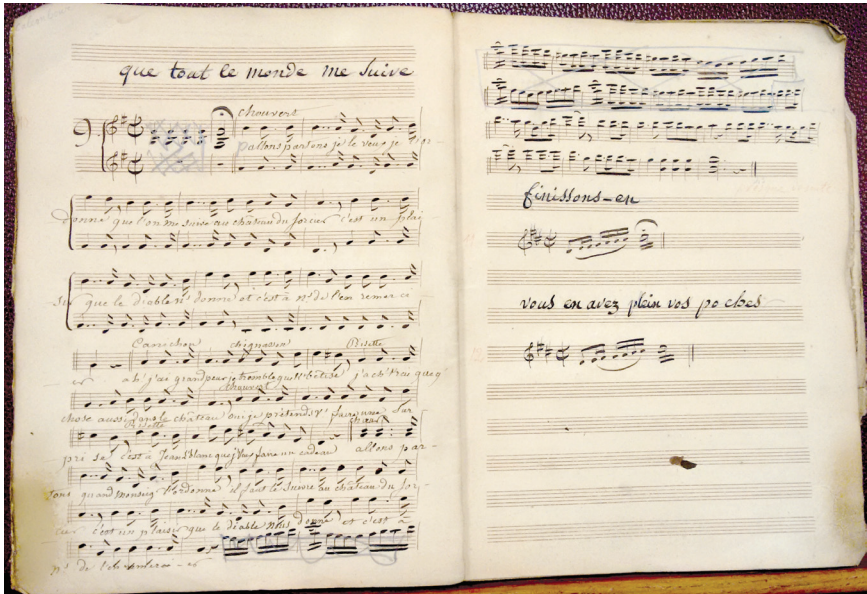 que tout le monde me suive
9.
chouvert
partons je le veux je l'or-
donne que l'on me suive au château du sorcier c'est un plai-
sir que le diable n.s donne et c'est à n.s de l'en remerci-
Canichon chignason Risette
er ah! j'ai grand peur je tremble quell' bêtise j'ach't'rai quequ'
chouvert
chose aussi dans le château ou je prétends l' faire une sur
Risette chœur
pri se! c'est à Jeans blanc que j' veux faire un cadeau allons par-
tons quand monseig l'ordonne il faut le suivre au château du sor-
cier c'est un plaisir que le diable nous donne et c'est à
n.s de l'en
finissons-en
vous en avez plein vos poches